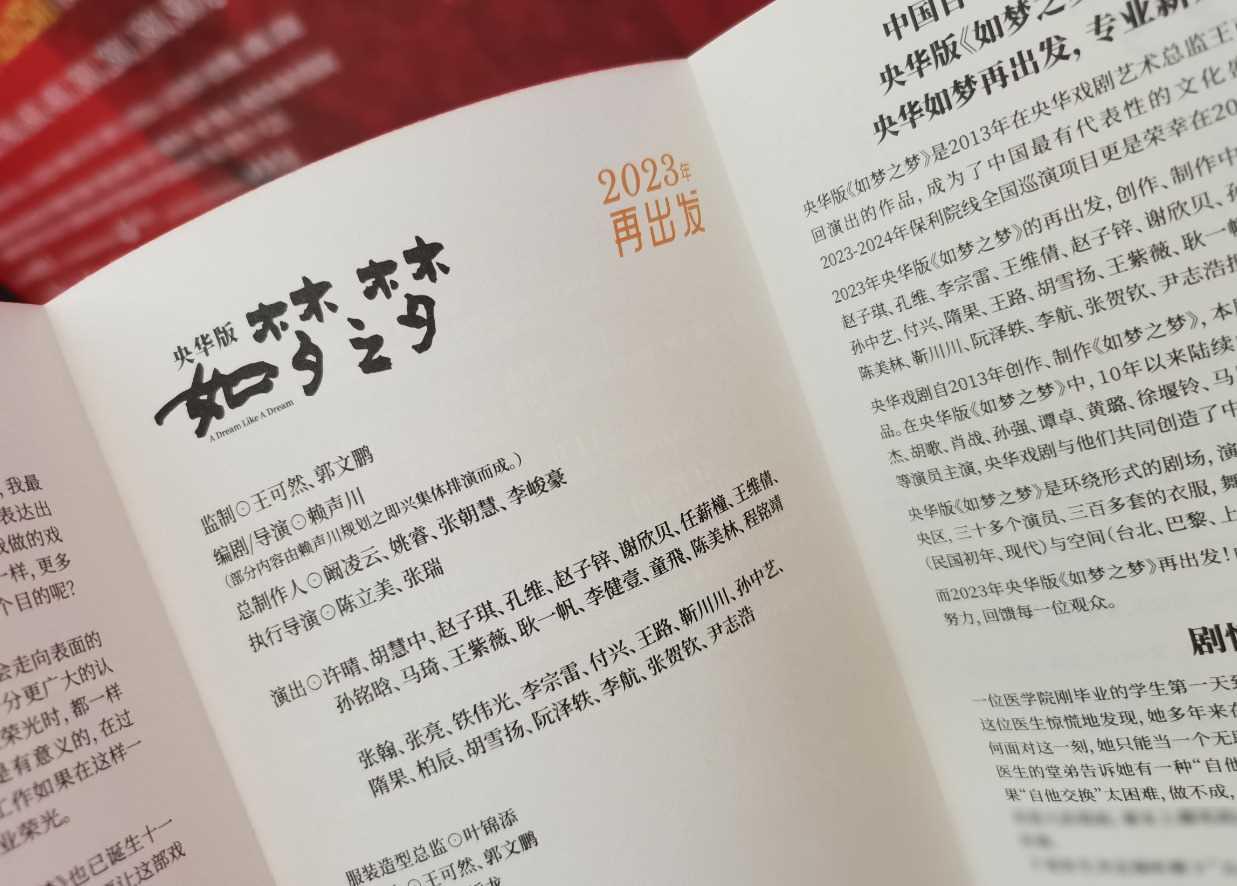 ，我最
表达出
我做的戏
一样，更多
个目的呢？
会走向表面的
分更广大的认
荣光时，都一样
是有意义的，在过
工作如果在这样一
业荣光。
也已诞生十一
要让这部戏
2023年
再出发
央华版
如梦之梦
A Dream Like A Dream
监制⊙王可然、郭文鹏
编剧/导演⊙赖声川
（部分内容由赖声川规划之即兴集体排演而成。）
总制作人⊙阚凌云、姚睿、张朝慧、李峻豪
执行导演⊙陈立美、张瑞
演出⊙许晴、胡慧中、赵子琪、孔维、赵子锌、谢欣贝、任薪橦、王维倩、
孙铭晗、马琦、王紫薇、耿一帆、李健壹、董飛、陈美林、程铭靖
张翰、张亮、铁伟光、李宗雷、付兴、王路、靳川川、孙中艺、
隋果、柏辰、胡雪扬、阮泽轶、李航、张贺钦、尹志浩
服装造型总监⊙叶锦添
⊙王可然、郭文鹏
中国
央华版《如梦之
央华如梦再出发，专业新
央华版《如梦之梦》是2013年在央华戏剧艺术总监王
回演出的作品，成为了中国最有代表性的文化
2023-2024年保利院线全国巡演项目更是荣幸在20
2023年央华版《如梦之梦》的再出发，创作、制作中
赵子琪、孔维、李宗雷、王维倩、赵子锌、谢欣贝、孙
孙中艺、付兴、隋果、王路、胡雪扬、王紫薇、耿一帆
陈美林、靳川川、阮泽轶、李航、张贺钦、尹志浩
央华戏剧自2013年创作、制作《如梦之梦》，本
品。在央华版《如梦之梦》中，10年以来陆续
杰、胡歌、肖战、孙强、谭卓、黄璐、徐堰铃、马
等演员主演，央华戏剧与他们共同创造了中
央华版《如梦之梦》是环绕形式的剧场，演
央区，三十多个演员、三百多套的衣服，舞
（民国初年、现代）与空间（台北、巴黎、上
而2023年央华版《如梦之梦》再出发！
努力，回馈每一位观众。
剧情
一位医学院刚毕业的学生第一天到
这位医生惊慌地发现，她多年来在
何面对这一刻，她只能当一个无
医生的堂弟告诉她有一种“自他
果“自他交换”太困难，做不成，